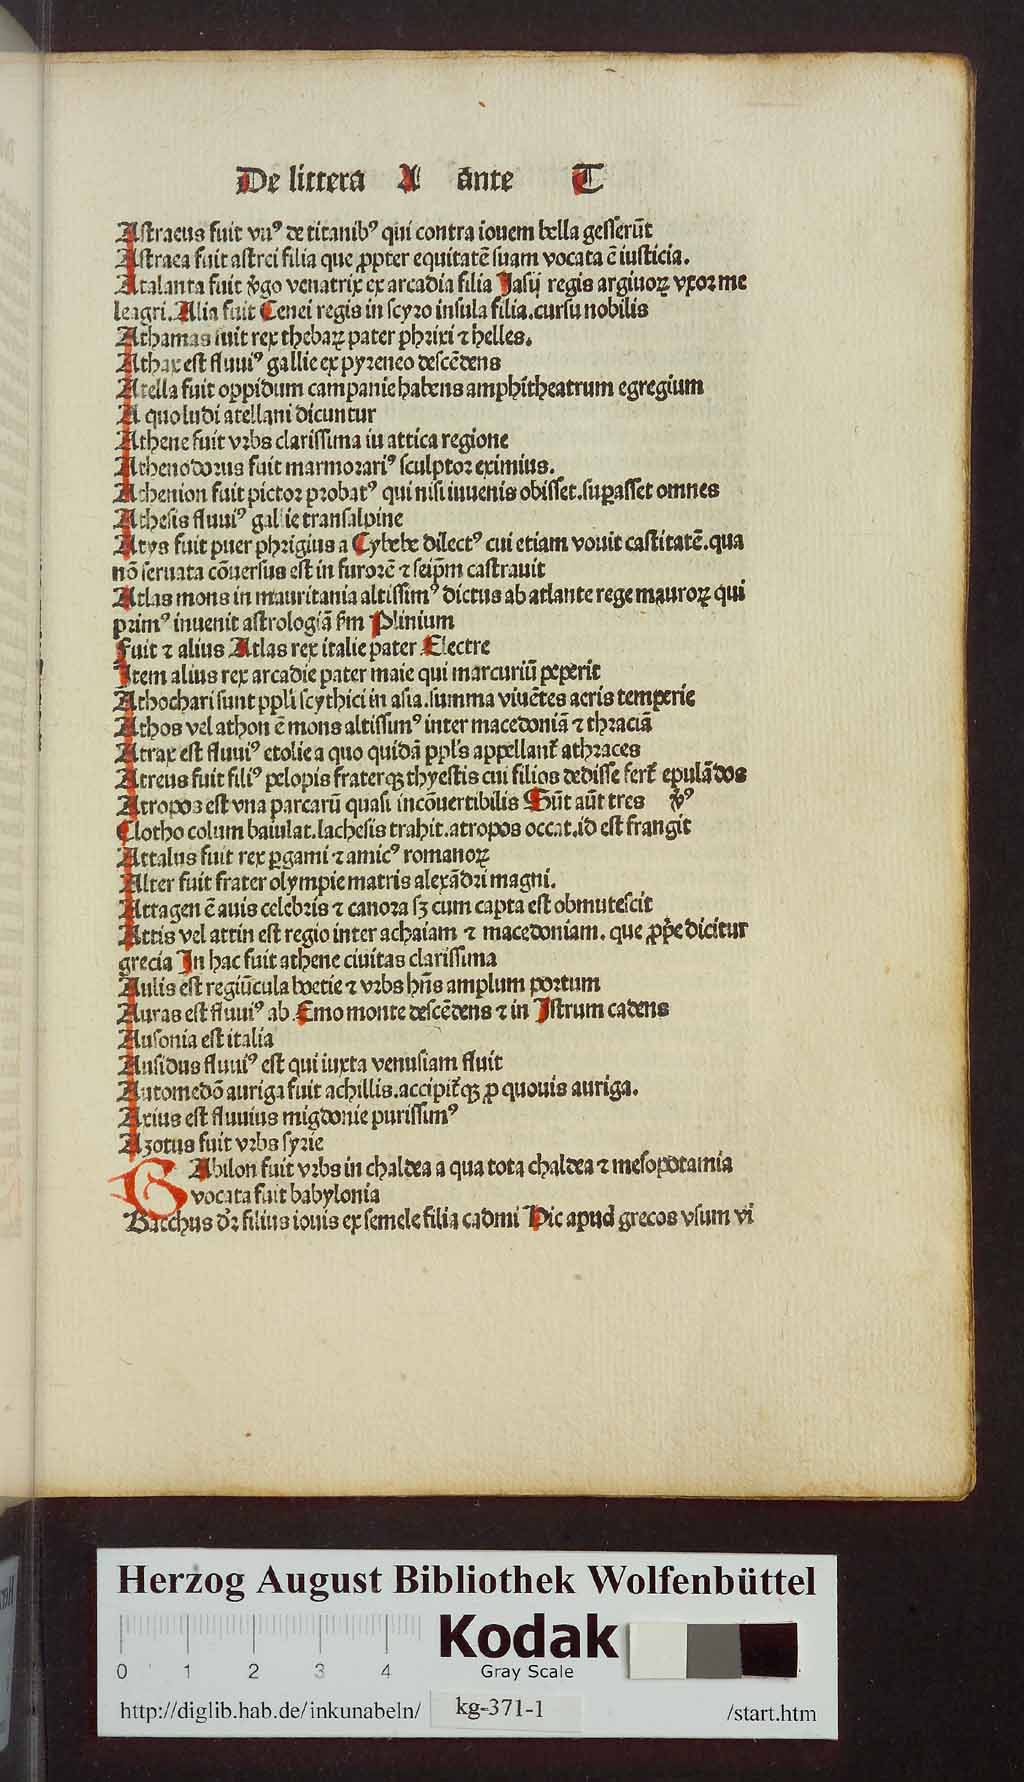 De littera A ante T
Astraeus fuit vnꝰ de titanibꝰ qui contra iouem bella gesserūt
Astraea fuit astrei filia que ꝓpter equitatē suam vocata ē iusticia.
Atalanta fuit v̊go venatrix ex arcadia filia Jasij regis argiuoꝝ vxor me
leagri. Alia fuit Cenei regis in scyro insula filia. cursu nobilis
Athamas fuit rex thebaꝝ pater phrixi ⁊ helles.
Athax est fluuiꝰ gallie ex pyreneo descēdens
Atella fuit oppidum campanie habens amphitheatrum egregium
A quo ludi atellani dicuntur
Athene fuit vrbs clarissima iu attica regione
Athenodorus fuit marmorariꝰ sculptor eximius.
Athenion fuit pictor probatꝰ qui nisi iuuenis obisset. suꝑasset omnes
Athesis fluuiꝰ gallie transalpine
Atys fuit puer phrigius a Cybebe dilectꝰ cui etiam vouit castitatē. qua
nō seruata cōuersus est in furorē ⁊ seip̄m castrauit
Atlas mons in mauritania altissimꝰ dictus ab atlante rege mauroꝝ qui
primꝰ inuenit astrologiā sm̄ Plinium
Fuit ⁊ alius Atlas rex italie pater Electre
Item alius rex arcadie pater maie qui marcuriū peperit
Athochari sunt ppl̄i scythici in asia. summa viuētes aeris temperie
Athos vel athon ē mons altissimꝰ inter macedoniā ⁊ thraciā
Atrax est fluuiꝰ etolie a quo quidā ppl̄s appellant᷑ athraces
Atreus fuit filiꝰ pelopis fraterqꝫ thyestis cui filios dedisse fert᷑ epulādos
Atropos est vna parcarū quasi incōuertibilis Sūt aūt tres v̊ꝰ
Clotho colum baiulat. lachesis trahit. atropos occat. id est frangit
Attalus fuit rex ꝑgami ⁊ amicꝰ romanoꝝ
Alter fuit frater olympie matris alexādri magni.
Attagen ē auis celebris ⁊ canora sꝫ cum capta est obmutescit
Attis vel attin est regio inter achaiam ⁊ macedoniam. que ꝓp̄e dicitur
grecia In hac fuit athene ciuitas clarissima
Aulis est regiūcula boetie ⁊ vrbs hn̄s amplum portum
Auras est fluuiꝰ ab Emo monte descēdens ⁊ in Istrum cadens
Ausonia est italia
Ausidus fluuiꝰ est qui iuxta venusiam fluit
Automedō auriga fuit achillis. accipit᷑qꝫ ꝓ quouis auriga.
Axius est fluuius migdonie purissimꝰ
Azotus fuit vrbs syrie
BAbilon fuit vrbs in chaldea a qua tota chaldea ⁊ mesopotamia
vocata fuit babylonia
Bacchus dr̄ filius iouis ex semele filia cadmi Hic apud grecos vsum vi
Herzog August Bibliothek Wolfenbüttel
Kodak
Gray Scale
0 1 2 3 4
http://diglib.hab.de/inkunabeln/ kg-371-1 /start.htm